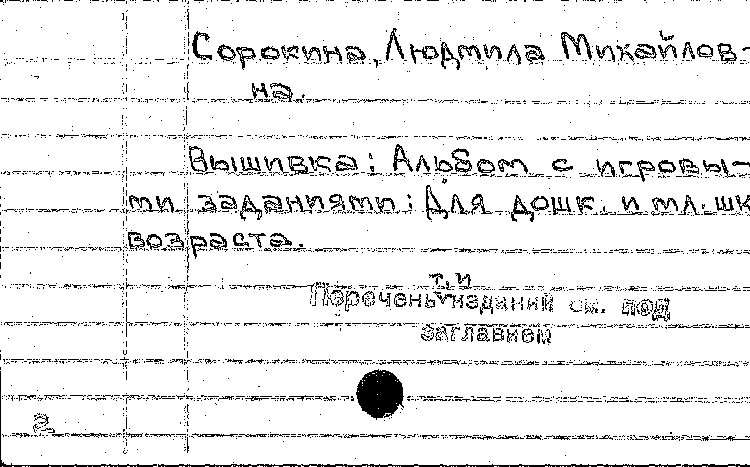 Сорокина, Людмила Михайлов-
на.
Вышивка: Альбом с игровы-
ми заданиями: Для дошк. и мл. шк
возраста.
т. и
Перечень изданий см. под
заглавием
2